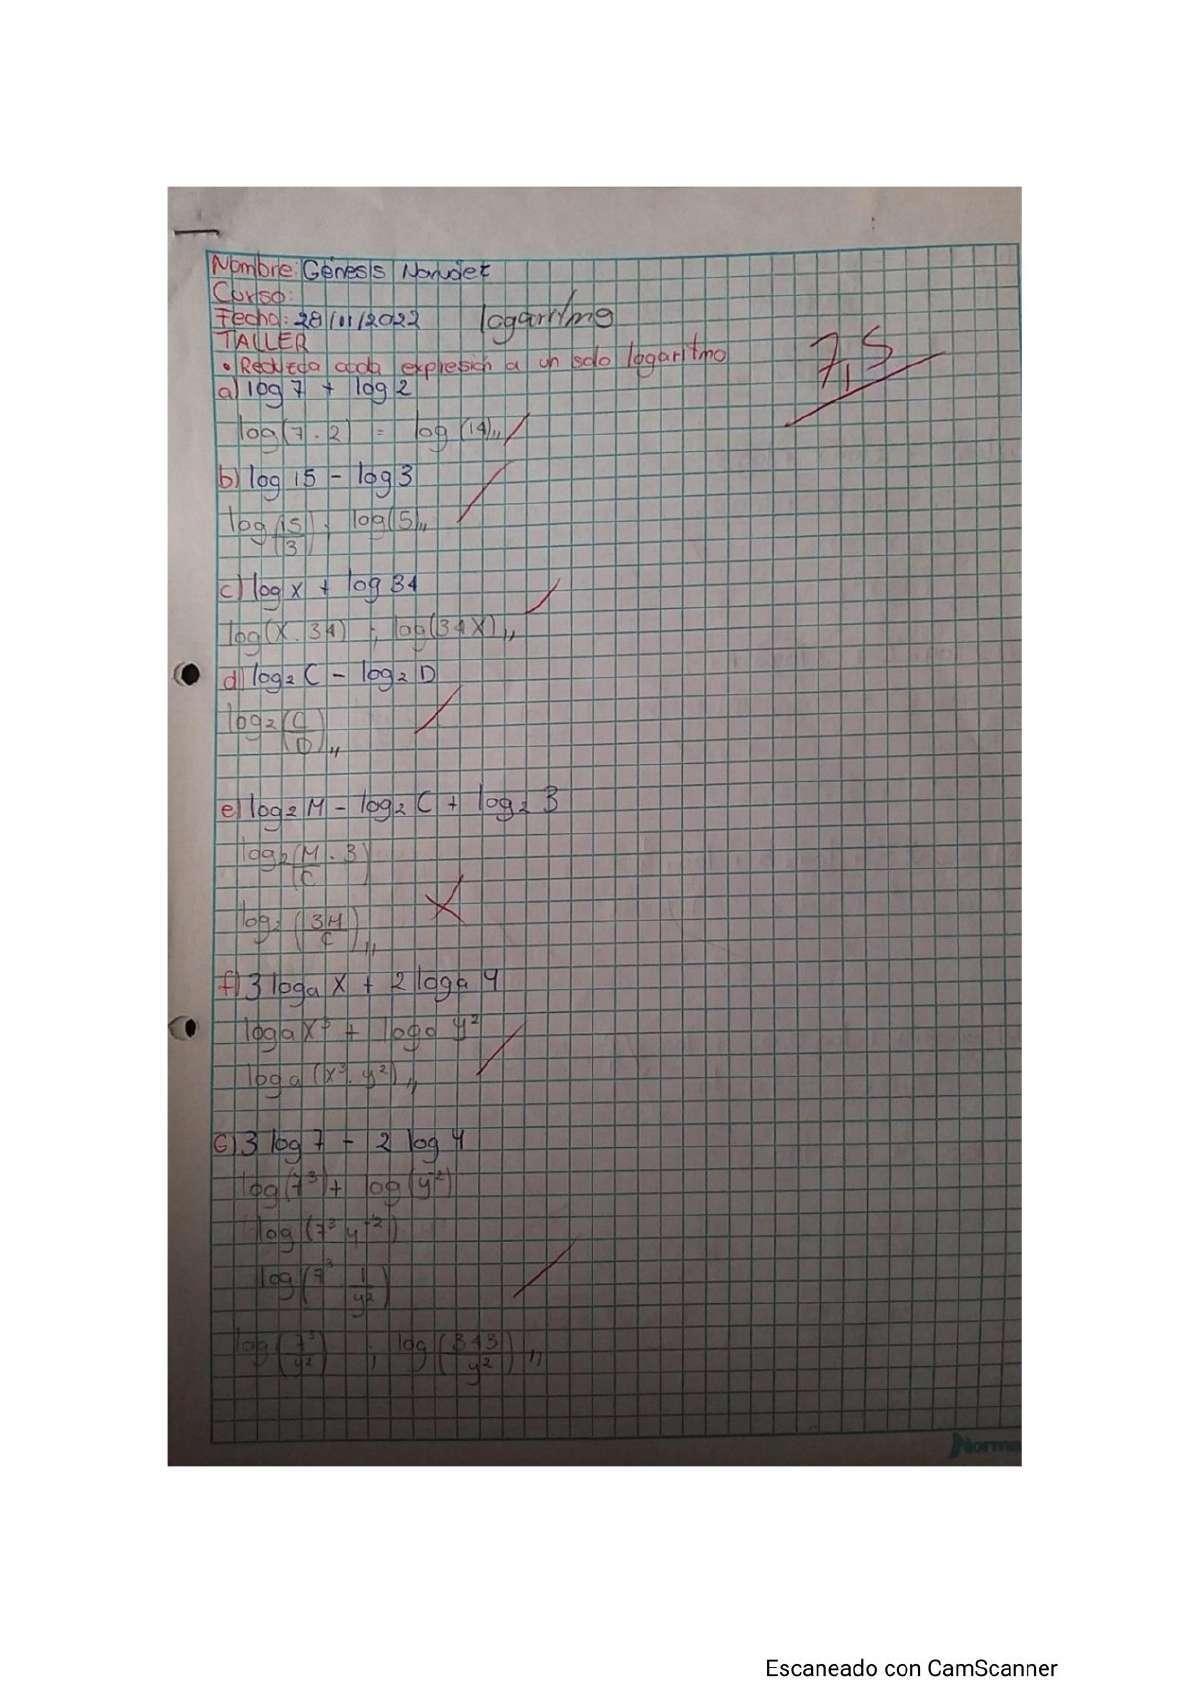 Nombre: Génesis
Curso:
Fecha: 28/11/2022 logaritmo
TALLER
• Reduzca cada expresión a un solo logaritmo
7,5
a) log 7 + log 2
log(7 . 2) = log (14),,
b) log 15 - log 3
log (15/3) ; log(5),,
c) log x + log 34
log(x . 34) ; log(34x),,
d) log₂ C - log₂ D
log₂ (C/D),,
e) log₂ M - log₂ C + log₂ 3
log₂ (M/C . 3)
log₂ (3M/C),,
f) 3 logₐ x + 2 logₐ y
logₐ x³ + logₐ y²
logₐ (x³ . y²),,
G) 3 log 7 - 2 log y
log(7³) + log(y⁻²)
log (7³ y⁻²)
log (7³ 1/y²)
log (7³/y²) ; log (343/y²),,
Norma
Escaneado con CamScanner